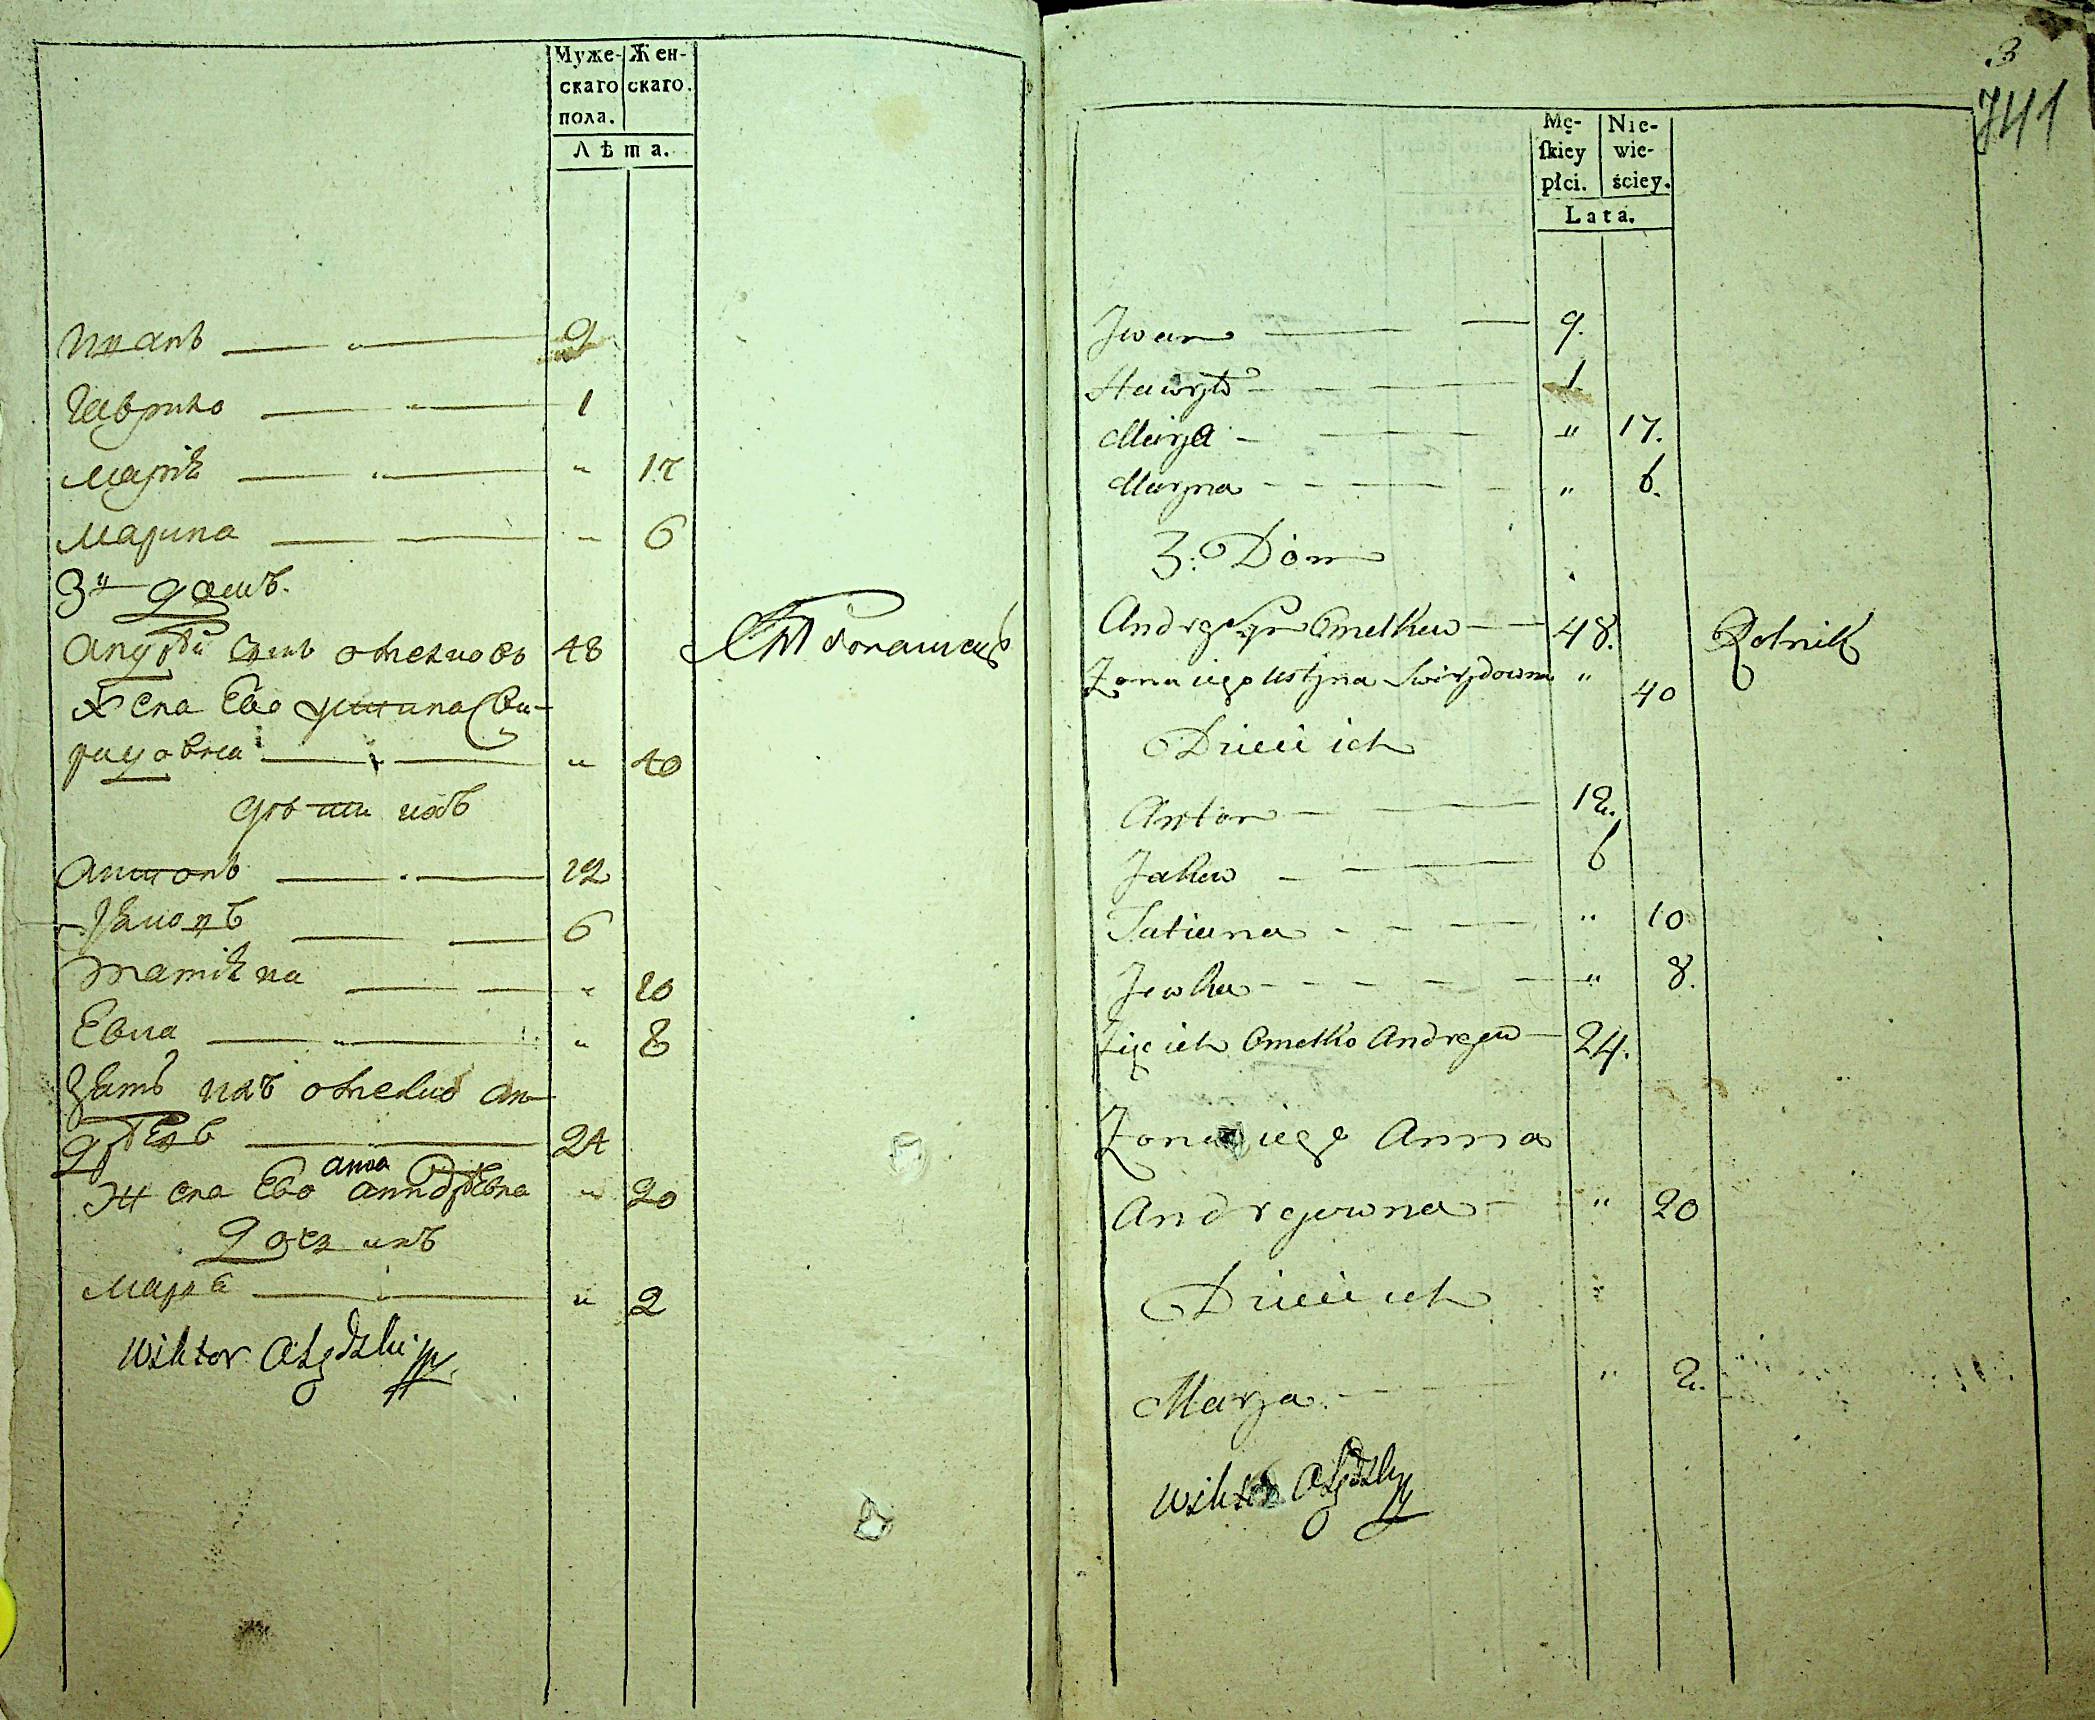 Муже- Жен-
скаго скаго.
пола.
Лѣта.
Иванъ 9
Гаврило 1
Марія " 17
Марина " 6
3й домъ.
Андрей сынъ Омелковъ 48
Жена Его Устина Сви-
ридовна " 40
дѣти ихъ
Антонъ 12
Яковъ 6
Татіяна " 10
Евка " 8
Зять ихъ Омелко Ан-
дрѣевъ 24
Жена Его анна Андрѣевна " 20
Дочь ихъ
Маря " 2
Wiktor
3
741
Mę- Nie-
ſkiey wie-
płci. ściey.
Lata.
Jwan 9.
Hawryło 1
Marya " 17.
Maryna " 6.
3. Dóm
Andrey syn Omelkew 48.
Żona iego Ustyna Swirydowna " 40
Rolnik
Dzieci ich
Anton 12.
Jakow 6
Tatiana " 10
Jewka " 8.
Zięć ich Omelko Andrejew 24.
Żona iego Anna
Andrejewna " 20
Dzieci ich
Marya " 2.
Wiktor